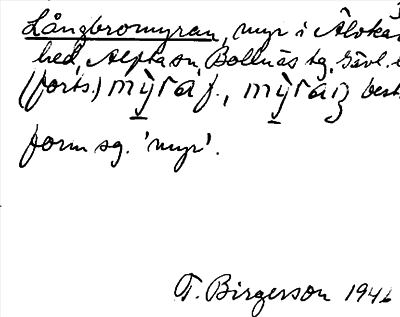 Långbromyran, myr i Älvkar
hed, Alfta sn, Bollnäs tg, Gävl.
(forts.) mỳra f., mỳraŋ best.
form sg. 'myr'.
T. Birgerson 1946